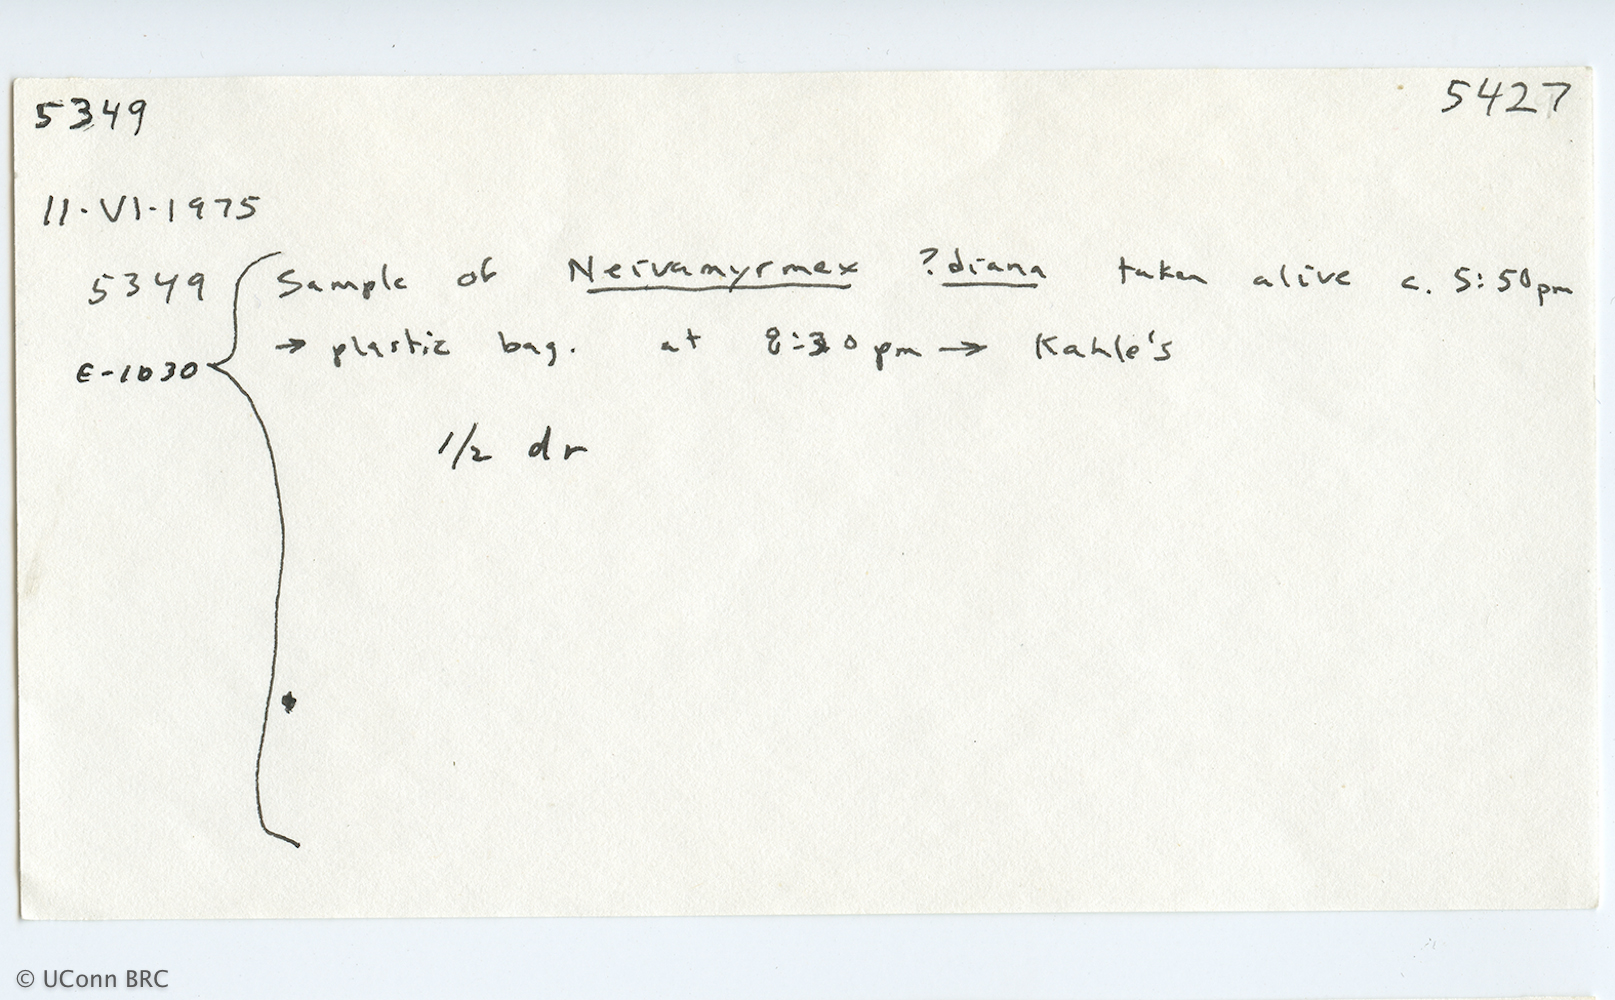 5349
5427
11·VI·1975
5349
Sample of Neivamyrmex ?diana taken alive c. 5:50pm
→ plastic bag. at 8:30pm → Kahle's
E-1030
1/2 dr
© UConn BRC